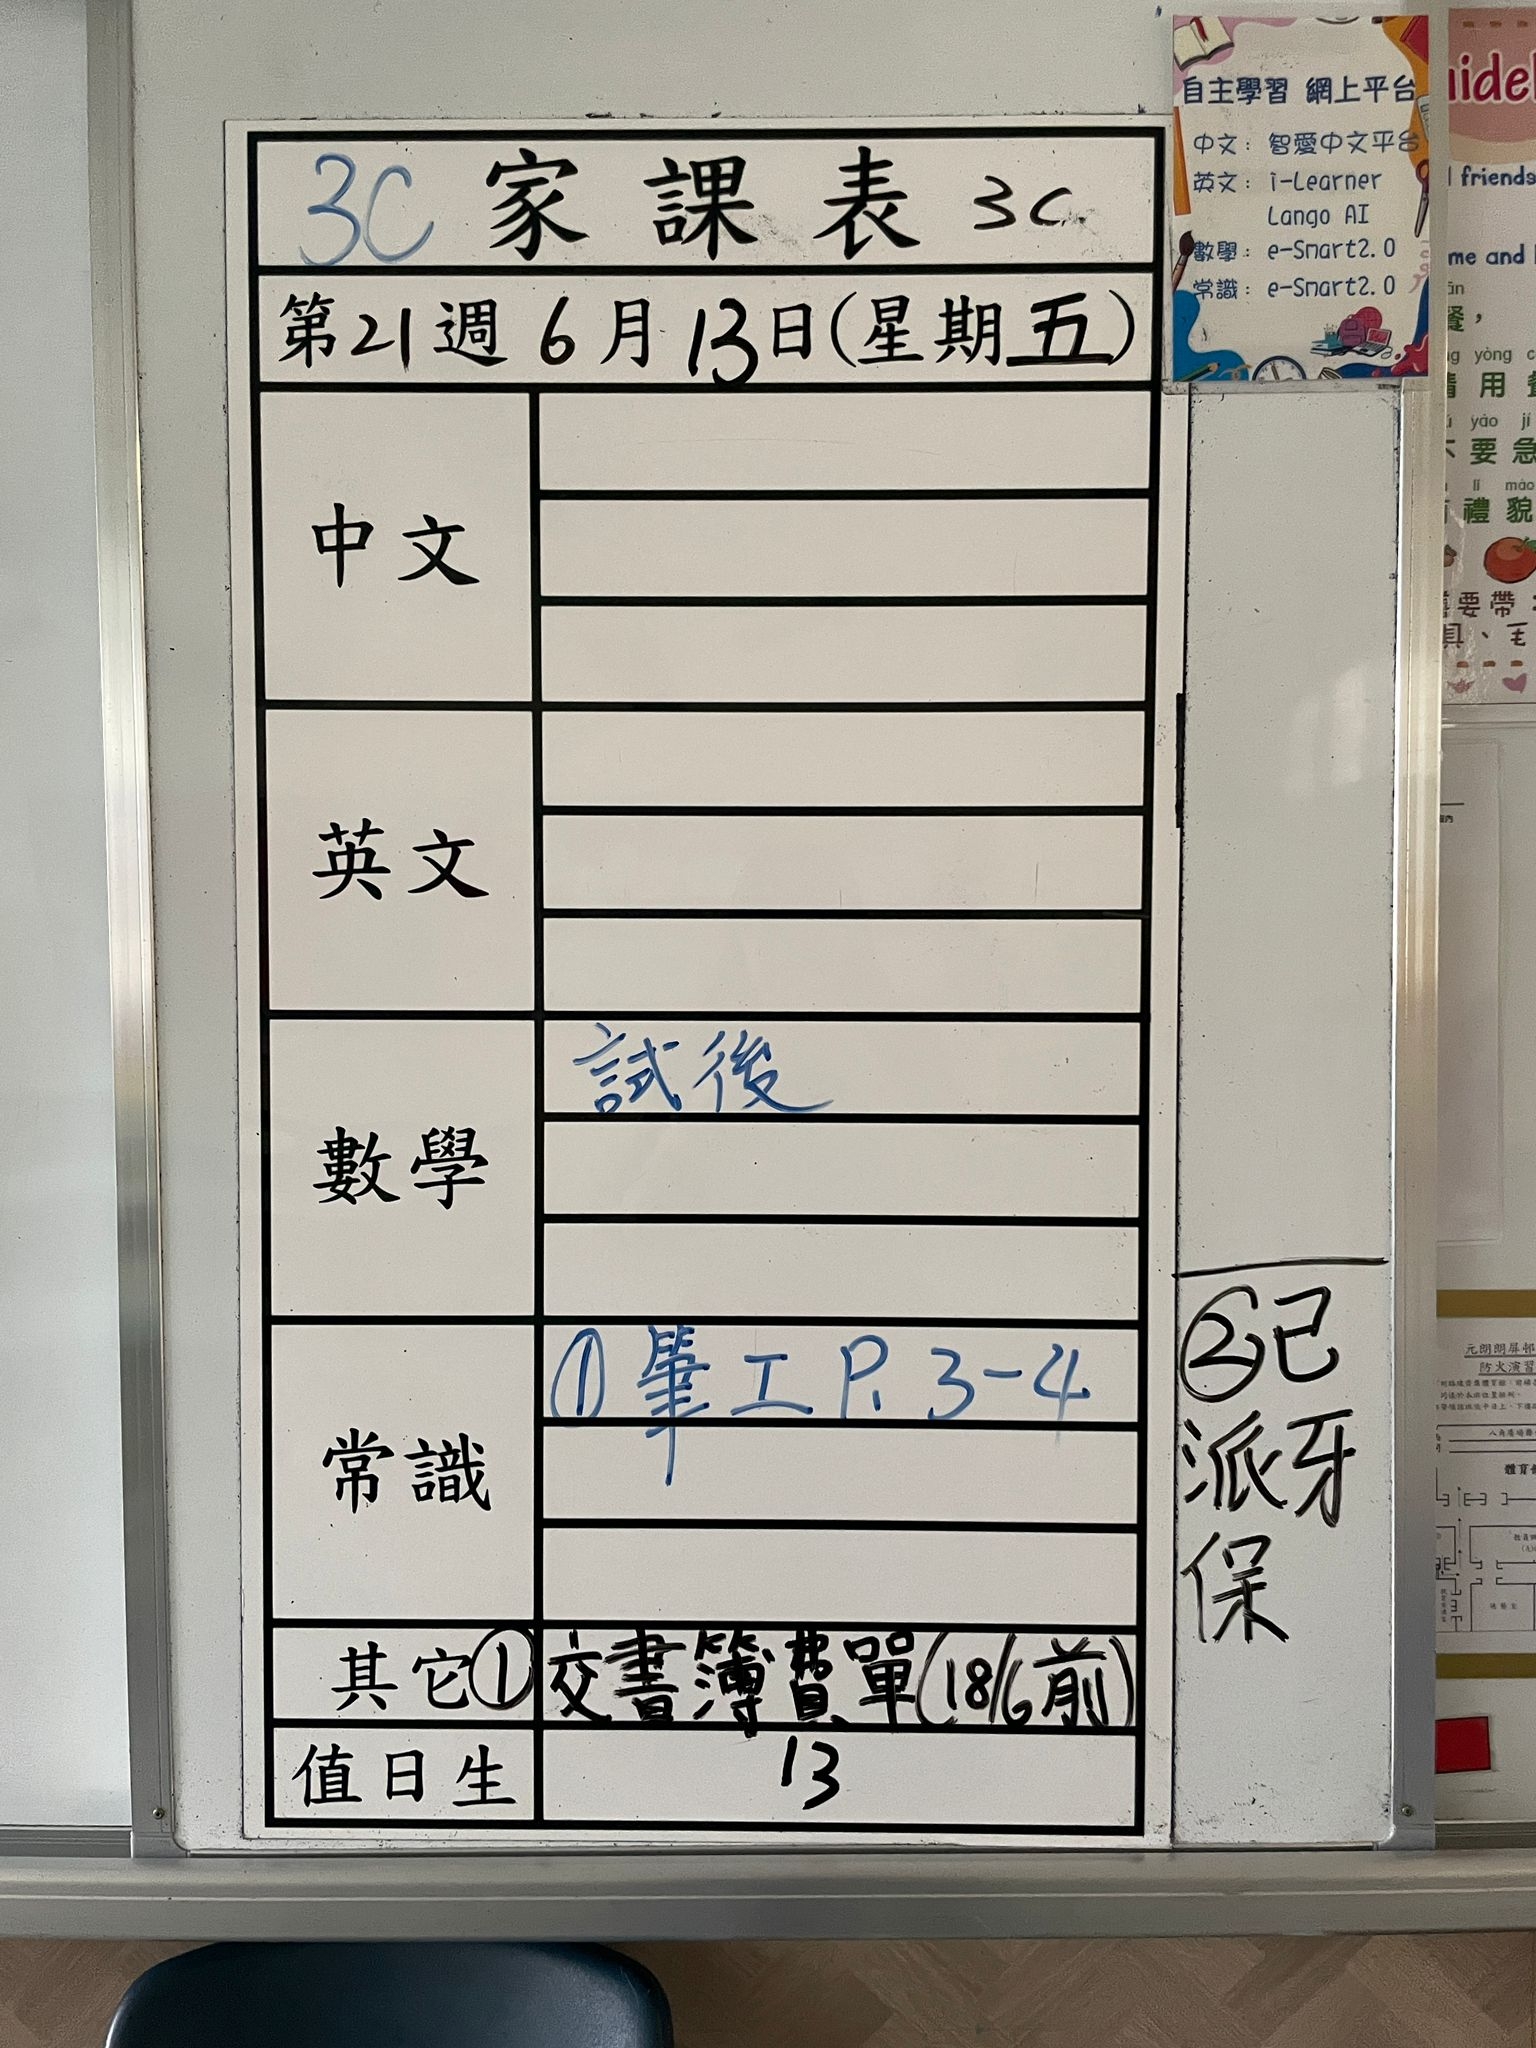 3C 家課表 3C.
第21週 6月13日(星期五)
中文
英文
數學
試後
常識
① 筆工 P. 3-4
其它
① 交書簿費單(18/6前)
值日生
13
②已
派牙
保
自主學習 網上平台
中文: 智愛中文平台
英文: i-Learner
Lango AI
數學: e-Smart2.0
常識: e-Smart2.0
friends
me and
yòng
用
yáo jí
要急
lǐ mào
禮貌
要帶
具、毛
元朗朗屏邨
防火演習